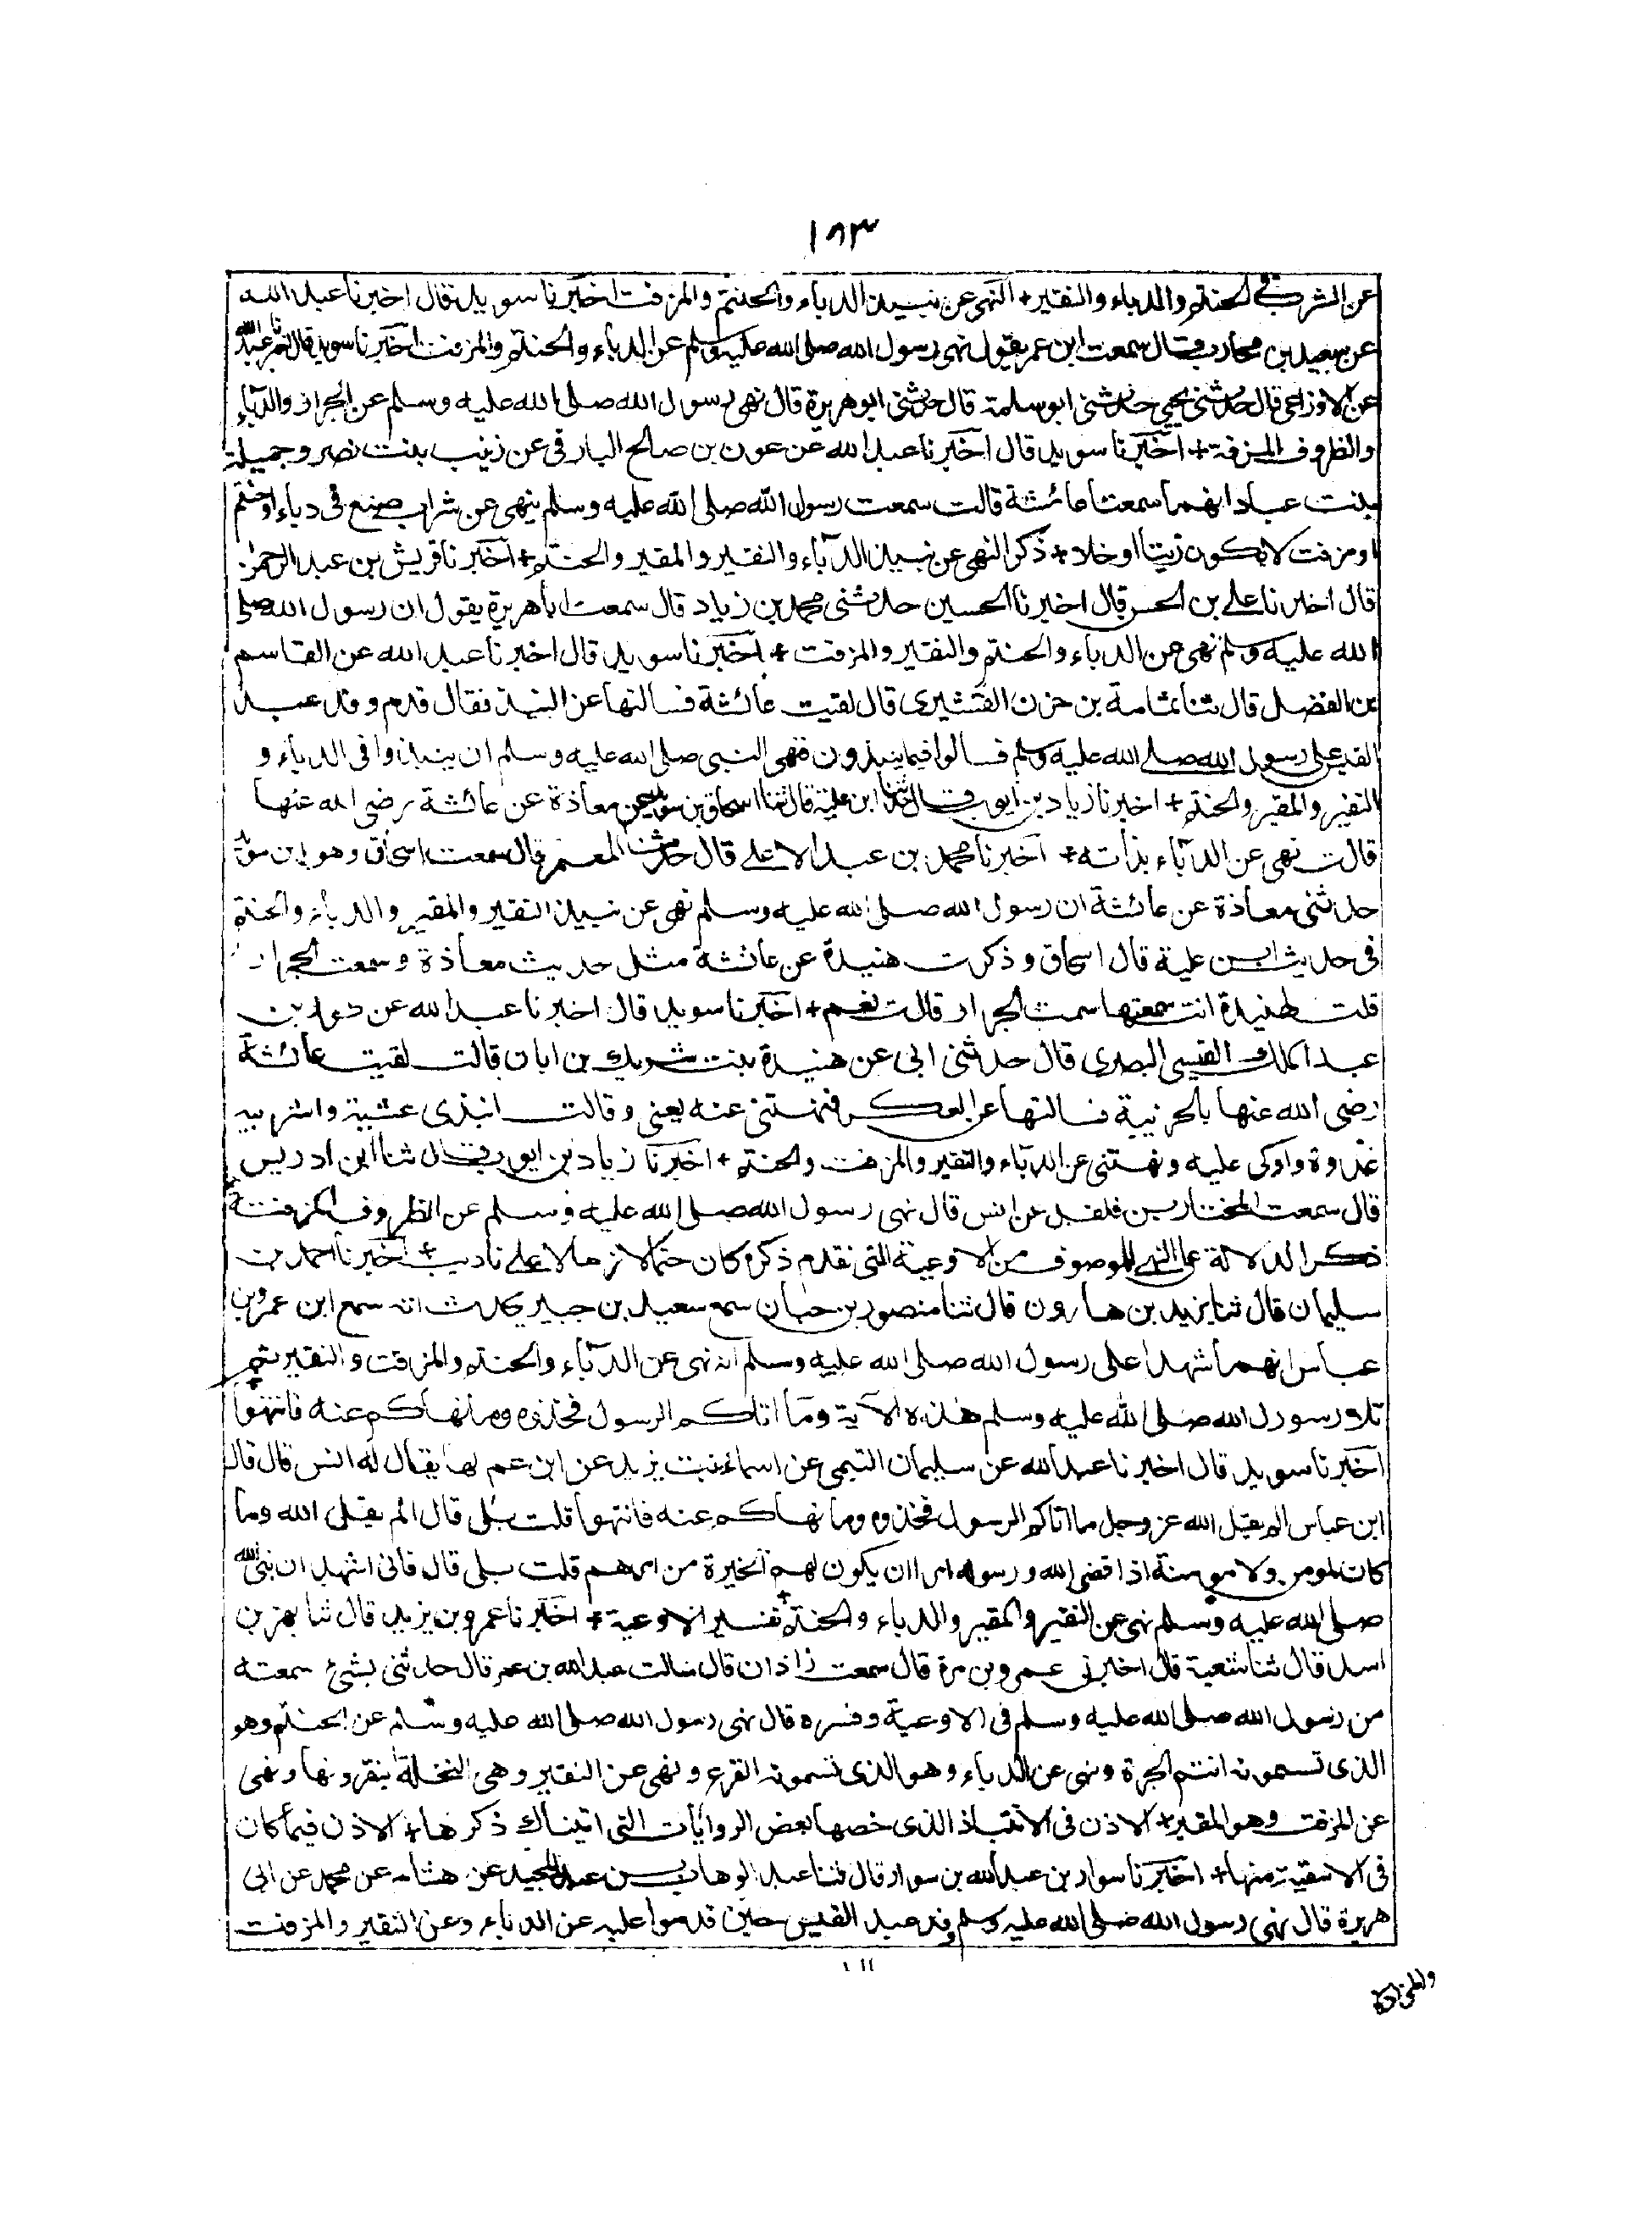 ١٨٣
عن الشرب في الحنتم والدباء والنقير + النهى عن نبيذ الدباء والحنتم والمزفت اخبرنا سويد قال اخبرنا عبد الله
عن سعيد بن محارب قال سمعت ابن عمر يقول نهى رسول الله صلى الله عليه وسلم عن الدباء والحنتم والمزفت اخبرنا سويد قال اخبرنا عبد الله
عن الاوزاعى قال حدثنى يحيى حدثنى ابو سلمة قال حدثنى ابو هريرة قال نهى رسول الله صلى الله عليه وسلم عن الجرار والدباء
والظروف المزفتة + اخبرنا سويد قال اخبرنا عبد الله عن عون بن صالح البارقى عن زينب بنت نصر وجميلة
بنت عباد انهما سمعتا عائشة قالت سمعت رسول الله صلى الله عليه وسلم ينهى عن شراب صنع فى دباء او حنتم
او مزفت لا يكون زيتا او خلا + ذكر النهى عن نبيذ الدباء والنقير والمقير والحنتم + اخبرنا قريش بن عبد الرحمن
قال اخبرنا على بن الحسن قال اخبرنا الحسين حدثنى محمد بن زياد قال سمعت ابا هريرة يقول ان رسول الله صلى
الله عليه وسلم نهى عن الدباء والحنتم والنقير والمزفت + اخبرنا سويد قال اخبرنا عبد الله عن القاسم
بن الفضل قال ثنا ثمامة بن حزن القشيرى قال لقيت عائشة فسالتها عن النبيذ فقال قدم وفد عبد
القيس على رسول الله صلى الله عليه وسلم فسالوا فيما ينبذون فنهى النبى صلى الله عليه وسلم ان ينبذوا فى الدباء و
النقير والمقير والحنتم + اخبرنا زياد بن ايوب قال ثنا ابن علية قال ثنا اسحاق بن سويد عن معاذة عن عائشة رضى الله عنها
قالت نهى عن الدباء بذاته + اخبرنا محمد بن عبد الاعلى قال حدثنا المعتمر قال سمعت اسحاق وهو ابن سويد
حدثنى معاذة عن عائشة ان رسول الله صلى الله عليه وسلم نهى عن نبيذ النقير والمقير والدباء والحنتم
فى حديث ابن علية قال اسحاق وذكرت هنيدة عن عائشة مثل حديث معاذة وسمعت الجرار
قلت لهنيدة انت سمعتها سمت الجرار قالت نعم + اخبرنا سويد قال اخبرنا عبد الله عن طود بن
عبد الملك القيسى البصرى قال حدثنى ابى عن هنيدة بنت شريك بن ابان قالت لقيت عائشة
رضى الله عنها بالخريبة فسالتها عن العكر فنهتنى عنه يعنى وقالت انبذى عشية واشربيه
غدوة واوكى عليه ونهتنى عن الدباء والنقير والمزفت والحنتم + اخبرنا زياد بن ايوب قال ثنا ابن ادريس
قال سمعت المختار بن فلفل عن انس قال نهى رسول الله صلى الله عليه وسلم عن الظروف المزفتة
ذكر الدلالة على النهى للموصوف من الاوعية التى تقدم ذكره كان حتما لازما لا على تاديب + اخبرنا احمد بن
سليمان قال ثنا يزيد بن هارون قال ثنا منصور بن حيان سمع سعيد بن جبير يحدث انه سمع ابن عمر وبن
عباس انهما شهدا على رسول الله صلى الله عليه وسلم انه نهى عن الدباء والحنتم والمزفت والنقير ثم
تلا رسول الله صلى الله عليه وسلم هذه الآية وما اتاكم الرسول فخذوه وما نهاكم عنه فانتهوا
اخبرنا سويد قال اخبرنا عبد الله عن سليمان التيمى عن اسماء بنت يزيد عن ابن عم لها يقال له انس قال قال
ابن عباس الم يقل الله عز وجل ما اتاكم الرسول فخذوه وما نهاكم عنه فانتهوا قلت بلى قال الم يقل الله وما
كان لمومن ولا مومنة اذا قضى الله ورسوله امرا ان يكون لهم الخيرة من امرهم قلت بلى قال فانى اشهد ان نبى الله
صلى الله عليه وسلم نهى عن النقير والمقير والدباء والحنتم + تفسير الاوعية + اخبرنا عمرو بن يزيد قال ثنا بهز بن
اسد قال ثنا شعبة قال اخبرنى عمرو بن مرة قال سمعت زاذان قال سالت عبد الله بن عمر قال حدثنى بشئ سمعته
من رسول الله صلى الله عليه وسلم فى الاوعية وفسره قال نهى رسول الله صلى الله عليه وسلم عن الحنتم وهو
الذى تسمونه انتم الجرة ونهى عن الدباء وهو الذى تسمونه القرع ونهى عن النقير وهى النخلة ينقرونها ونهى
عن المزفت وهو المقير + الاذن فى الانتباذ الذى خصها بعض الروايات التى اتيناك ذكرها + الاذن فيما كان
فى الاسقية منها + اخبرنا سوار بن عبد الله بن سوار قال ثنا عبد الوهاب بن عبد المجيد عن هشام عن محمد عن ابى
هريرة قال نهى رسول الله صلى الله عليه وسلم وفد عبد القيس حين قدموا عليه عن الدباء وعن النقير والمزفت